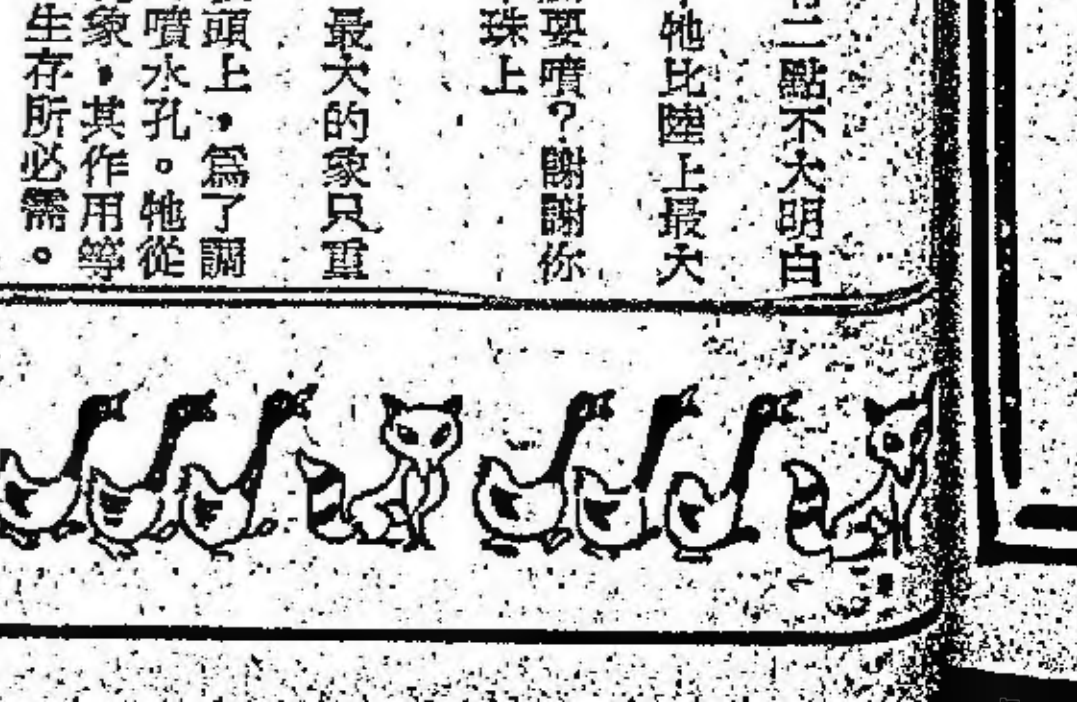 二點不大明白
牠比陸上最大
要噴？謝謝你
珠上
最大的象只重
頭上，爲了調
噴水孔。牠從
象，其作用等
生存所必需。